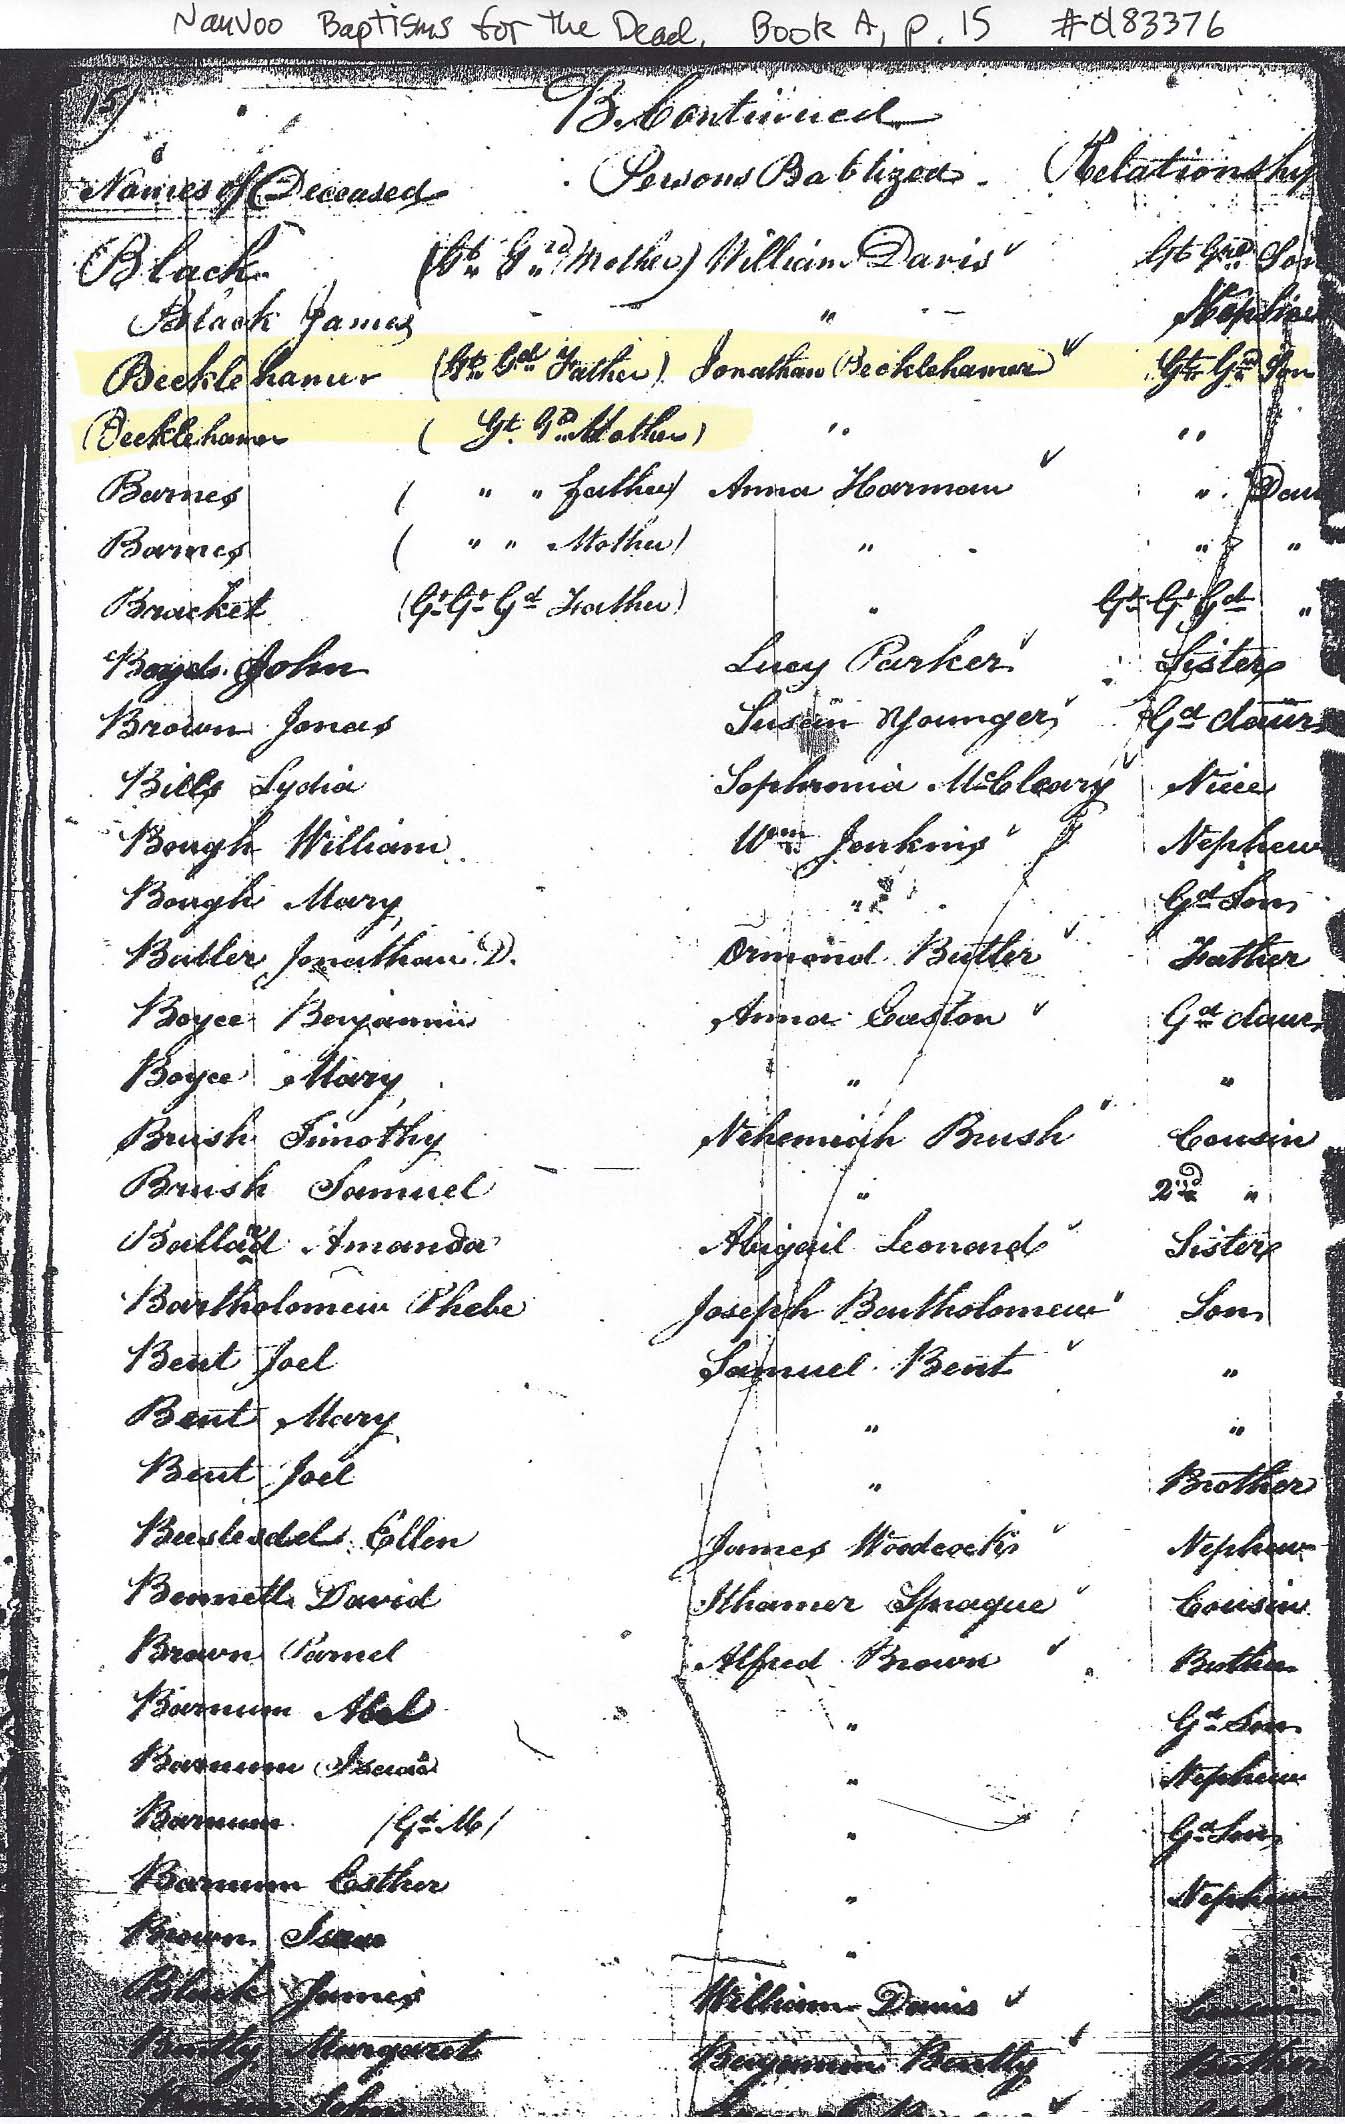 Nauvoo Baptisms for the Dead, Book A, p. 15 #0183376
15)
B. Continued
Names of Deceased Persons Babtized Relationship
Black (Gt Grd Mother) William Davis Gt Grd Son
Black James " Nephew
Becklehamer (Gt Gd Father) Jonathan Becklehamer Gt Gd Son
Becklehamer ( Gt Gd Mother) " "
Barnes ( " " father) Anna Harman " Dau
Barnes ( " " Mother) " " "
Bracket (Gt Gt Gd Father) " Gt Gt Gd "
Boyd John Lucy Parker Sister
Brown Jonas Susan Younger Gd daur
Bills Lydia Sophronia McCleary Niece
Bough William Wm Jenkins Nephew
Bough Mary " Gd Son
Butler Jonathan D. Ormond Butler Father
Boyce Benjamin Anna Easton Gd daur
Boyce Mary " "
Brush Timothy Nehemiah Brush Cousin
Brush Samuel " 2nd "
Ballard Amanda Abigail Leonard Sister
Bartholomew Phebe Joseph Bartholomew Son
Bent Joel Samuel Bent "
Bent Mary " "
Bent Joel " Brother
Ellen James Woodcock Nephew
Bennett David Ithamer Sprague Cousin
Brown Parnel Alfred Brown Brother
Barnum Abel " Gd Son
Barnum " Nephew
Barnum (Gd M) " Gd Son
Barnum Esther " Nephew
Brown "
Black James William Davis
Bently Margaret Benjamin Bently
John